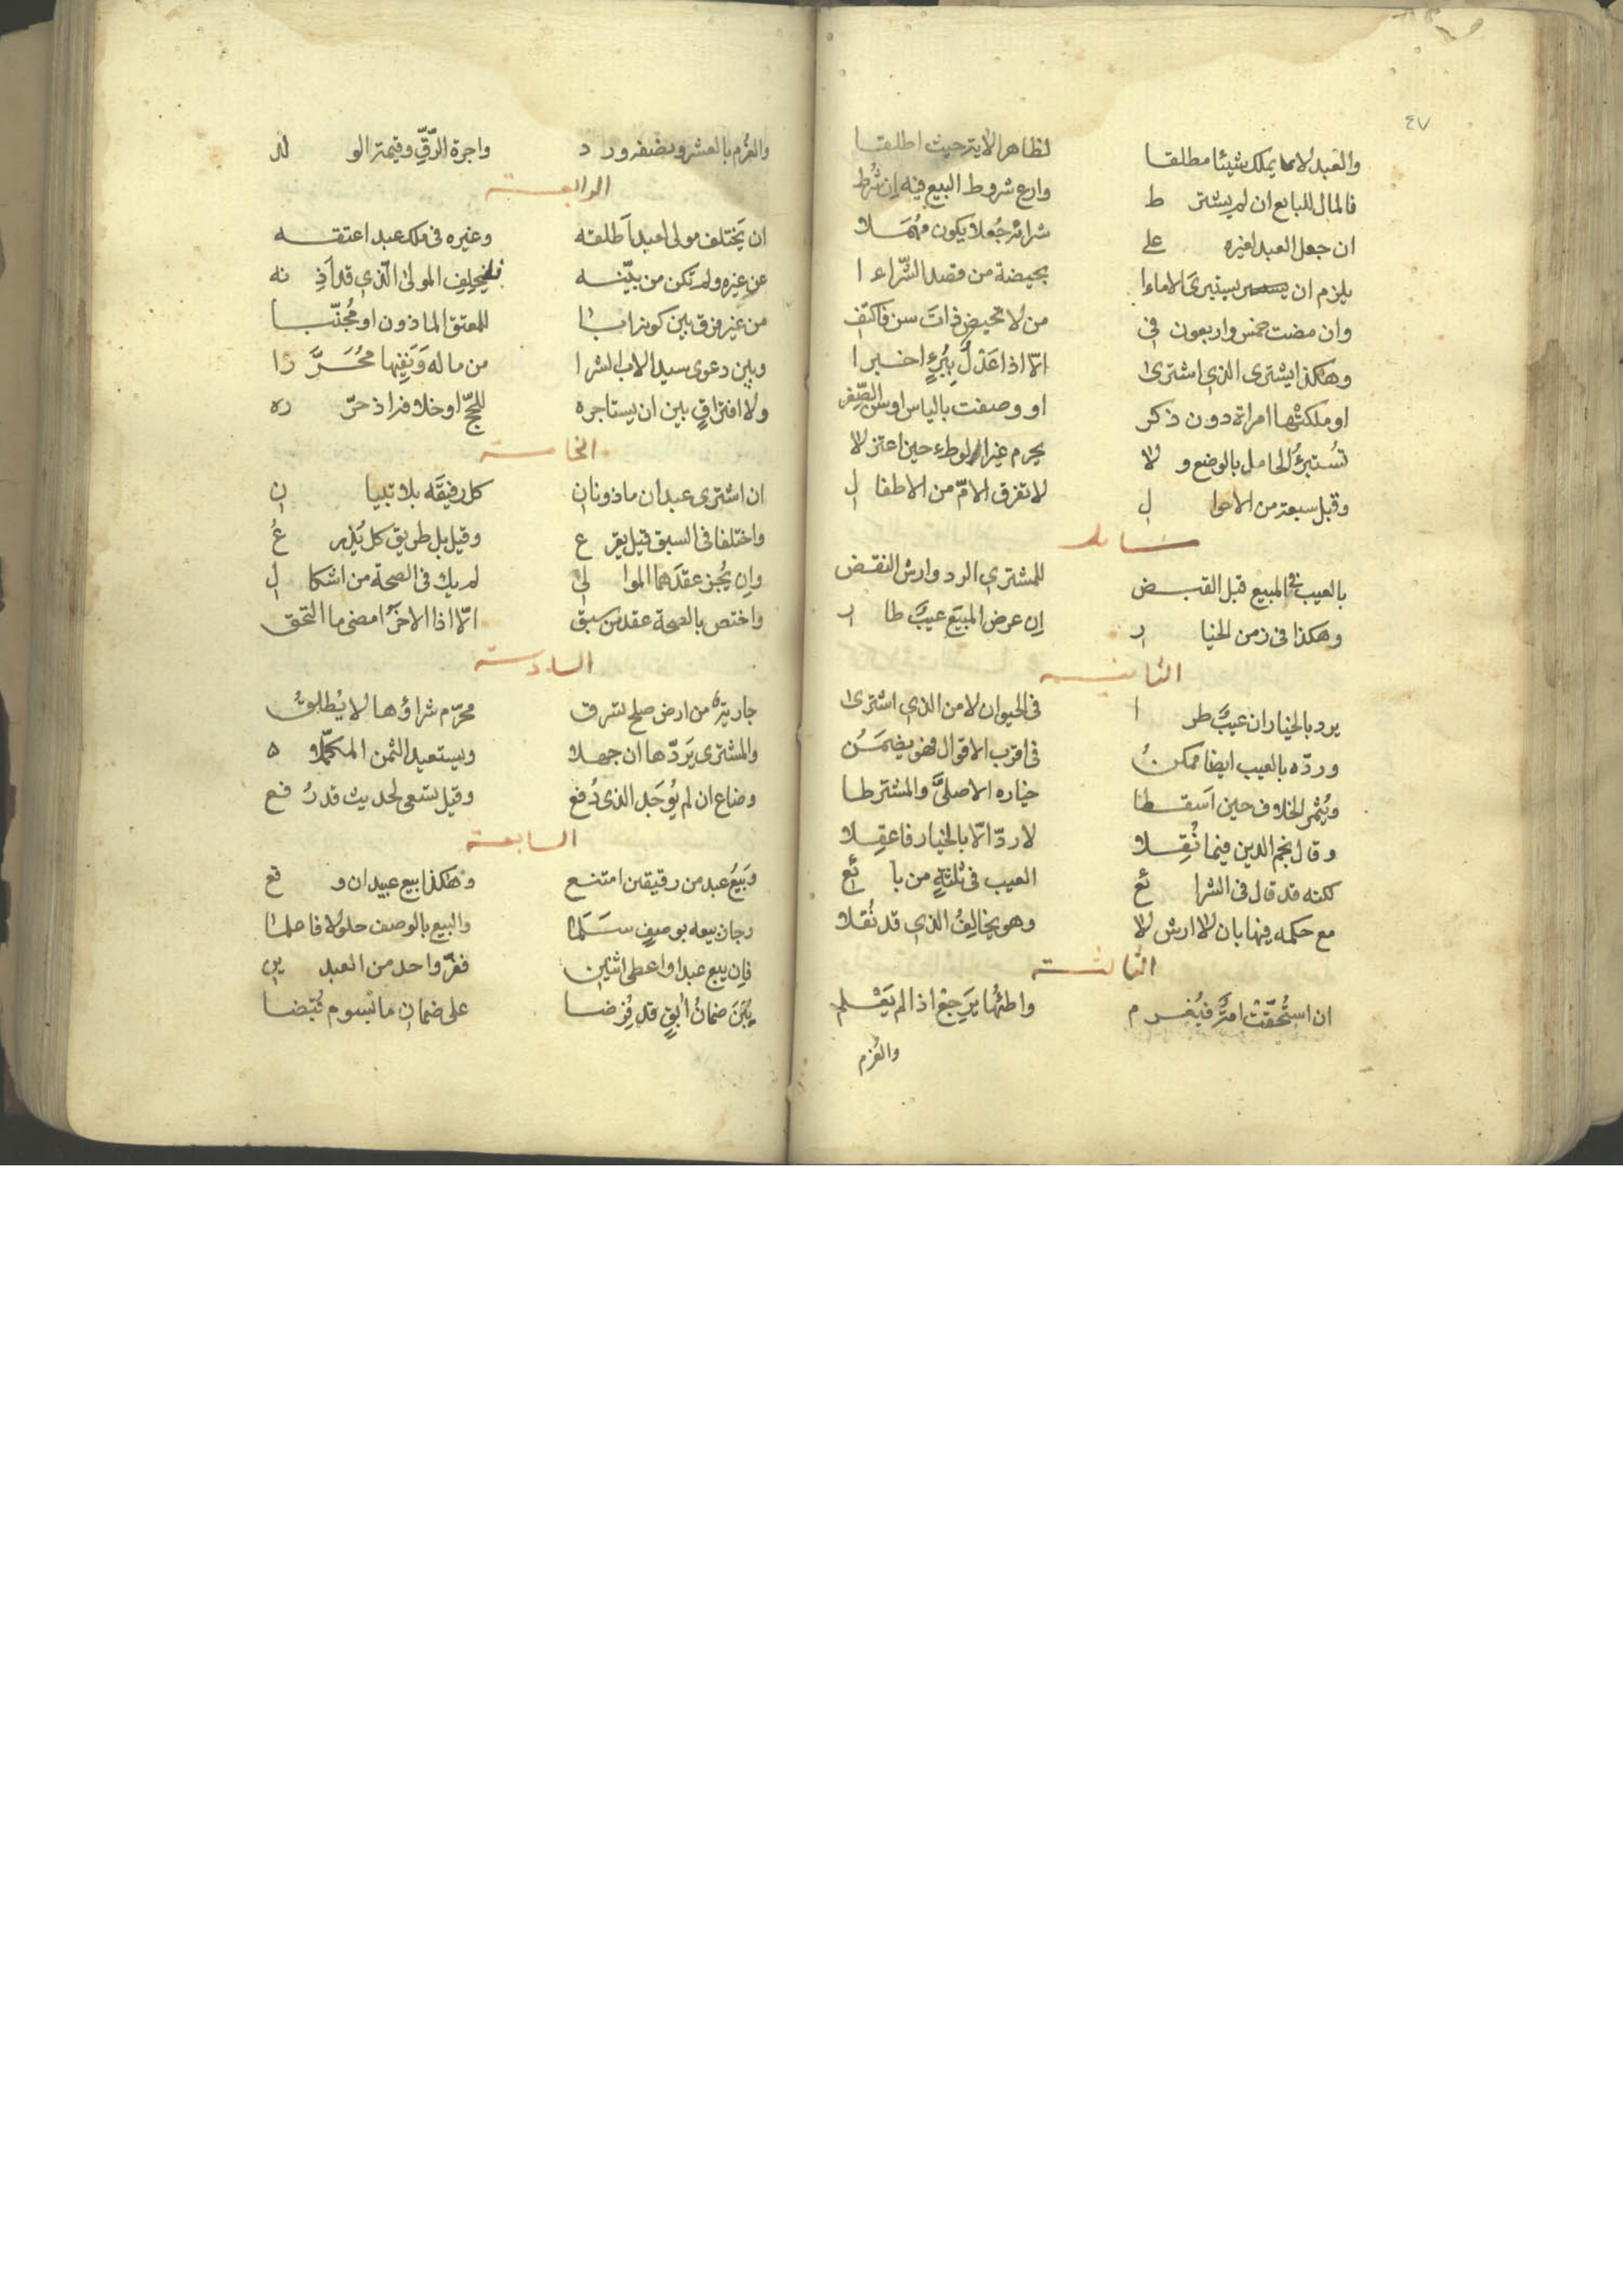 ٤٧
والعبد لا يملك شيئا مطلقا لظاهر الاية حيث اطلقا
فالمال للبايع ان لم يشترط وارع شروط البيع فيه ان شرط
ان جعل العبد لغيره على شرائه جعلا يكون مهملا
يلزم ان يستبرئ الاماءا بحيضة من قصد الشراءا
وان مضت خمس واربعون في من لا تحيض ذات سن فاكتف
وهكذا يشترى الذي اشترى الا اذا عدل ببرء اخبرا
او ملكتها امراة دون ذكر او وصفت بالياس او سن الصغر
تستبرئ الحامل بالوضع ولا يحرم غير الوطء حين اعتزلا
وقبل سبعة من الاحوال لا تفرق الام من الاطفال
مسائل
بالعيب في المبيع قبل القبض للمشتري الرد وارش النقض
وهكذا في زمن الخيار ان عرض المبيع عيب طار
الثانيه
يرد بالخيار ان عيب طرا في الحيوان لا من الذي اشترى
ورده بالعيب ايضا ممكن في اقرب الاقوال فهو يضمن
ويثمر الخلاف حين اسقطا خياره الاصلي والمشترطا
وقال نجم الدين فيما نقلا لا رد الا بالخيار فاعقلا
لكنه قد قال في الشرائع العيب في ثلثة من بائع
مع حكمه فيها بان لا ارش لا وهو يخالف الذي قد نقلا
الثالثة
ان استحقت امة فيغرم واطئها يرجع اذا لم يعلم
والغرم
والغرم بالعشر ونصفه ورد واجرة الرق وقيمة الولد
الرابعة
ان يختلف مولى لعبد اطلقه وغيره في ملك عبد اعتقه
عن غيره ولم تكن من بينه فليحلف المولى الذي قد اذنه
من غير فرق بين كونه ابا للمعتق الماذون او مجنبا
وبين دعوى سيد الاب الشرا من ماله ونفيها محررا
ولا افتراق بين ان يستاجره للحج او خلافه اذ حرره
الخامسة
ان اشترى عبدان ماذونان كل رفيقه بلا تبيان
واختلفا في السبق قيل يقرع وقيل بل طريق كل يذرع
وان يجز عقدهما الموالي لم يك في الصحة من اشكال
واختص بالصحة عقد من سبق الا اذا الاخر امضى ما التحق
السادسة
جارية من ارض صلح تسرق محرم شراؤها لا يطلق
والمشترى يردها ان جهلا ويستعيد الثمن المكملا
وضاع ان لم يوجد الذي دفع وقيل تسعى لحديث قد رفع
السابعة
وبيع عبد من رقيقين امتنع وهكذا بيع عبيد ان وقع
وجاز بيعه بوصف سلما والبيع بالوصف حلولا فاعلما
فان يبع عبدا واعطى اثنين ففر واحد من العبدين
يبن ضمان ابق قد فرضا على ضمان ما بسوم قبضا